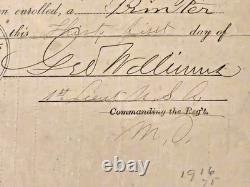 en enrolled, a Printer
this Thirty First day of
Geo Williams
1st Lieut U.S.A
Commanding the Reg't.
M.O.
1916
75
© 122975